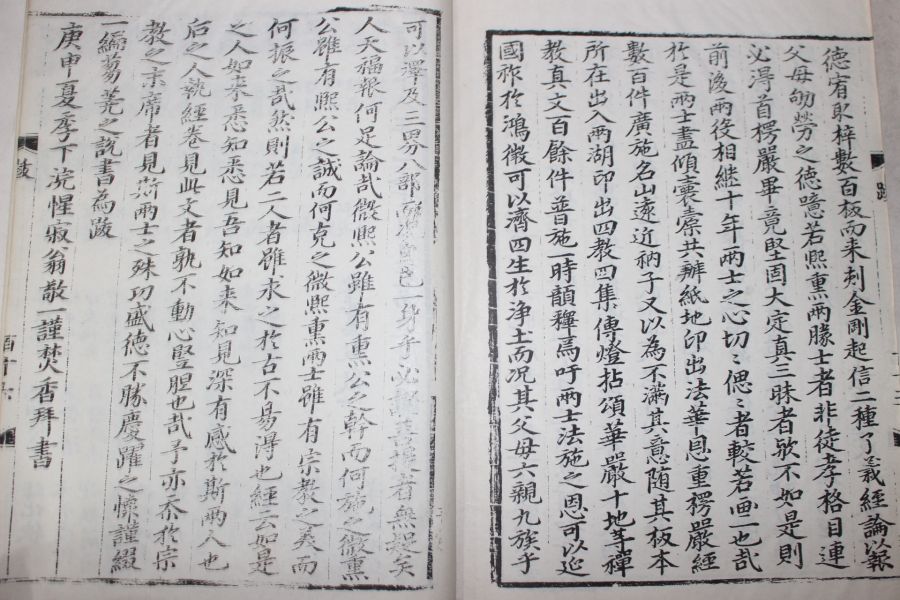 德宥取梓數百板而来刺金剛起信二種了義經論以報
父母劬勞之德噫若熙熏兩勝士者非徒孝格目連
必淂首楞嚴畢竟堅固大定真三昧者欤不如是則
前後兩役相継十年兩士之心切〻偲〻者較若画一也哉
於是兩士盡傾囊橐共辦紙地印出法華恩重楞嚴經
數百件廣施名山遠近衲子又以為不滿其意随其板本
所在出入兩湖印出四教四集傳燈拈頌華嚴十地等禪
教真文百餘件普施一時韻釋焉吁兩士法施之恩可以延
國祚於鴻徽可以濟四生於净土而况其父母六親九族乎
可以澤及三界八部一身乎必無疑矣
人天福報何足論哉微熙公雖有熏公之幹而何施之微熏
公雖有熙公之誠而何克之微熙熏兩士雖有宗教之美而
何振之哉然則若二人者雖求之於古不易淂也經云如是
之人如来悉知悉見吾知如来知見深有感於斯兩人也
后之人執經卷見此文者孰不動心竪胆也哉予亦忝於宗
教之末席者見兩士之殊功盛德不勝慶躍之懷謹綴
一編蒭蕘之說書為跋
庚申夏季下浣惺寂翁敬一謹焚香拜書
跋